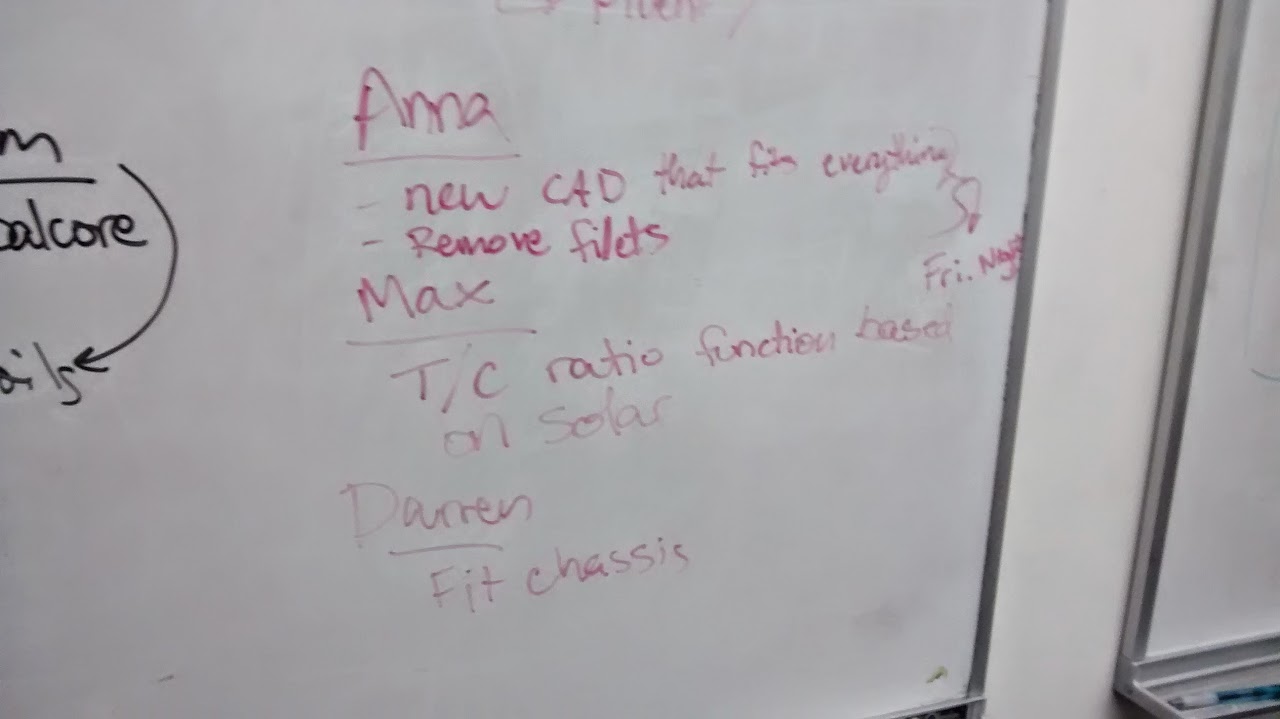 m
balcore
ails
Anna
- new CAD that fits everything
- Remove filets
Fri. Night
Max
T/C ratio function based
on solar
Darren
Fit chassis